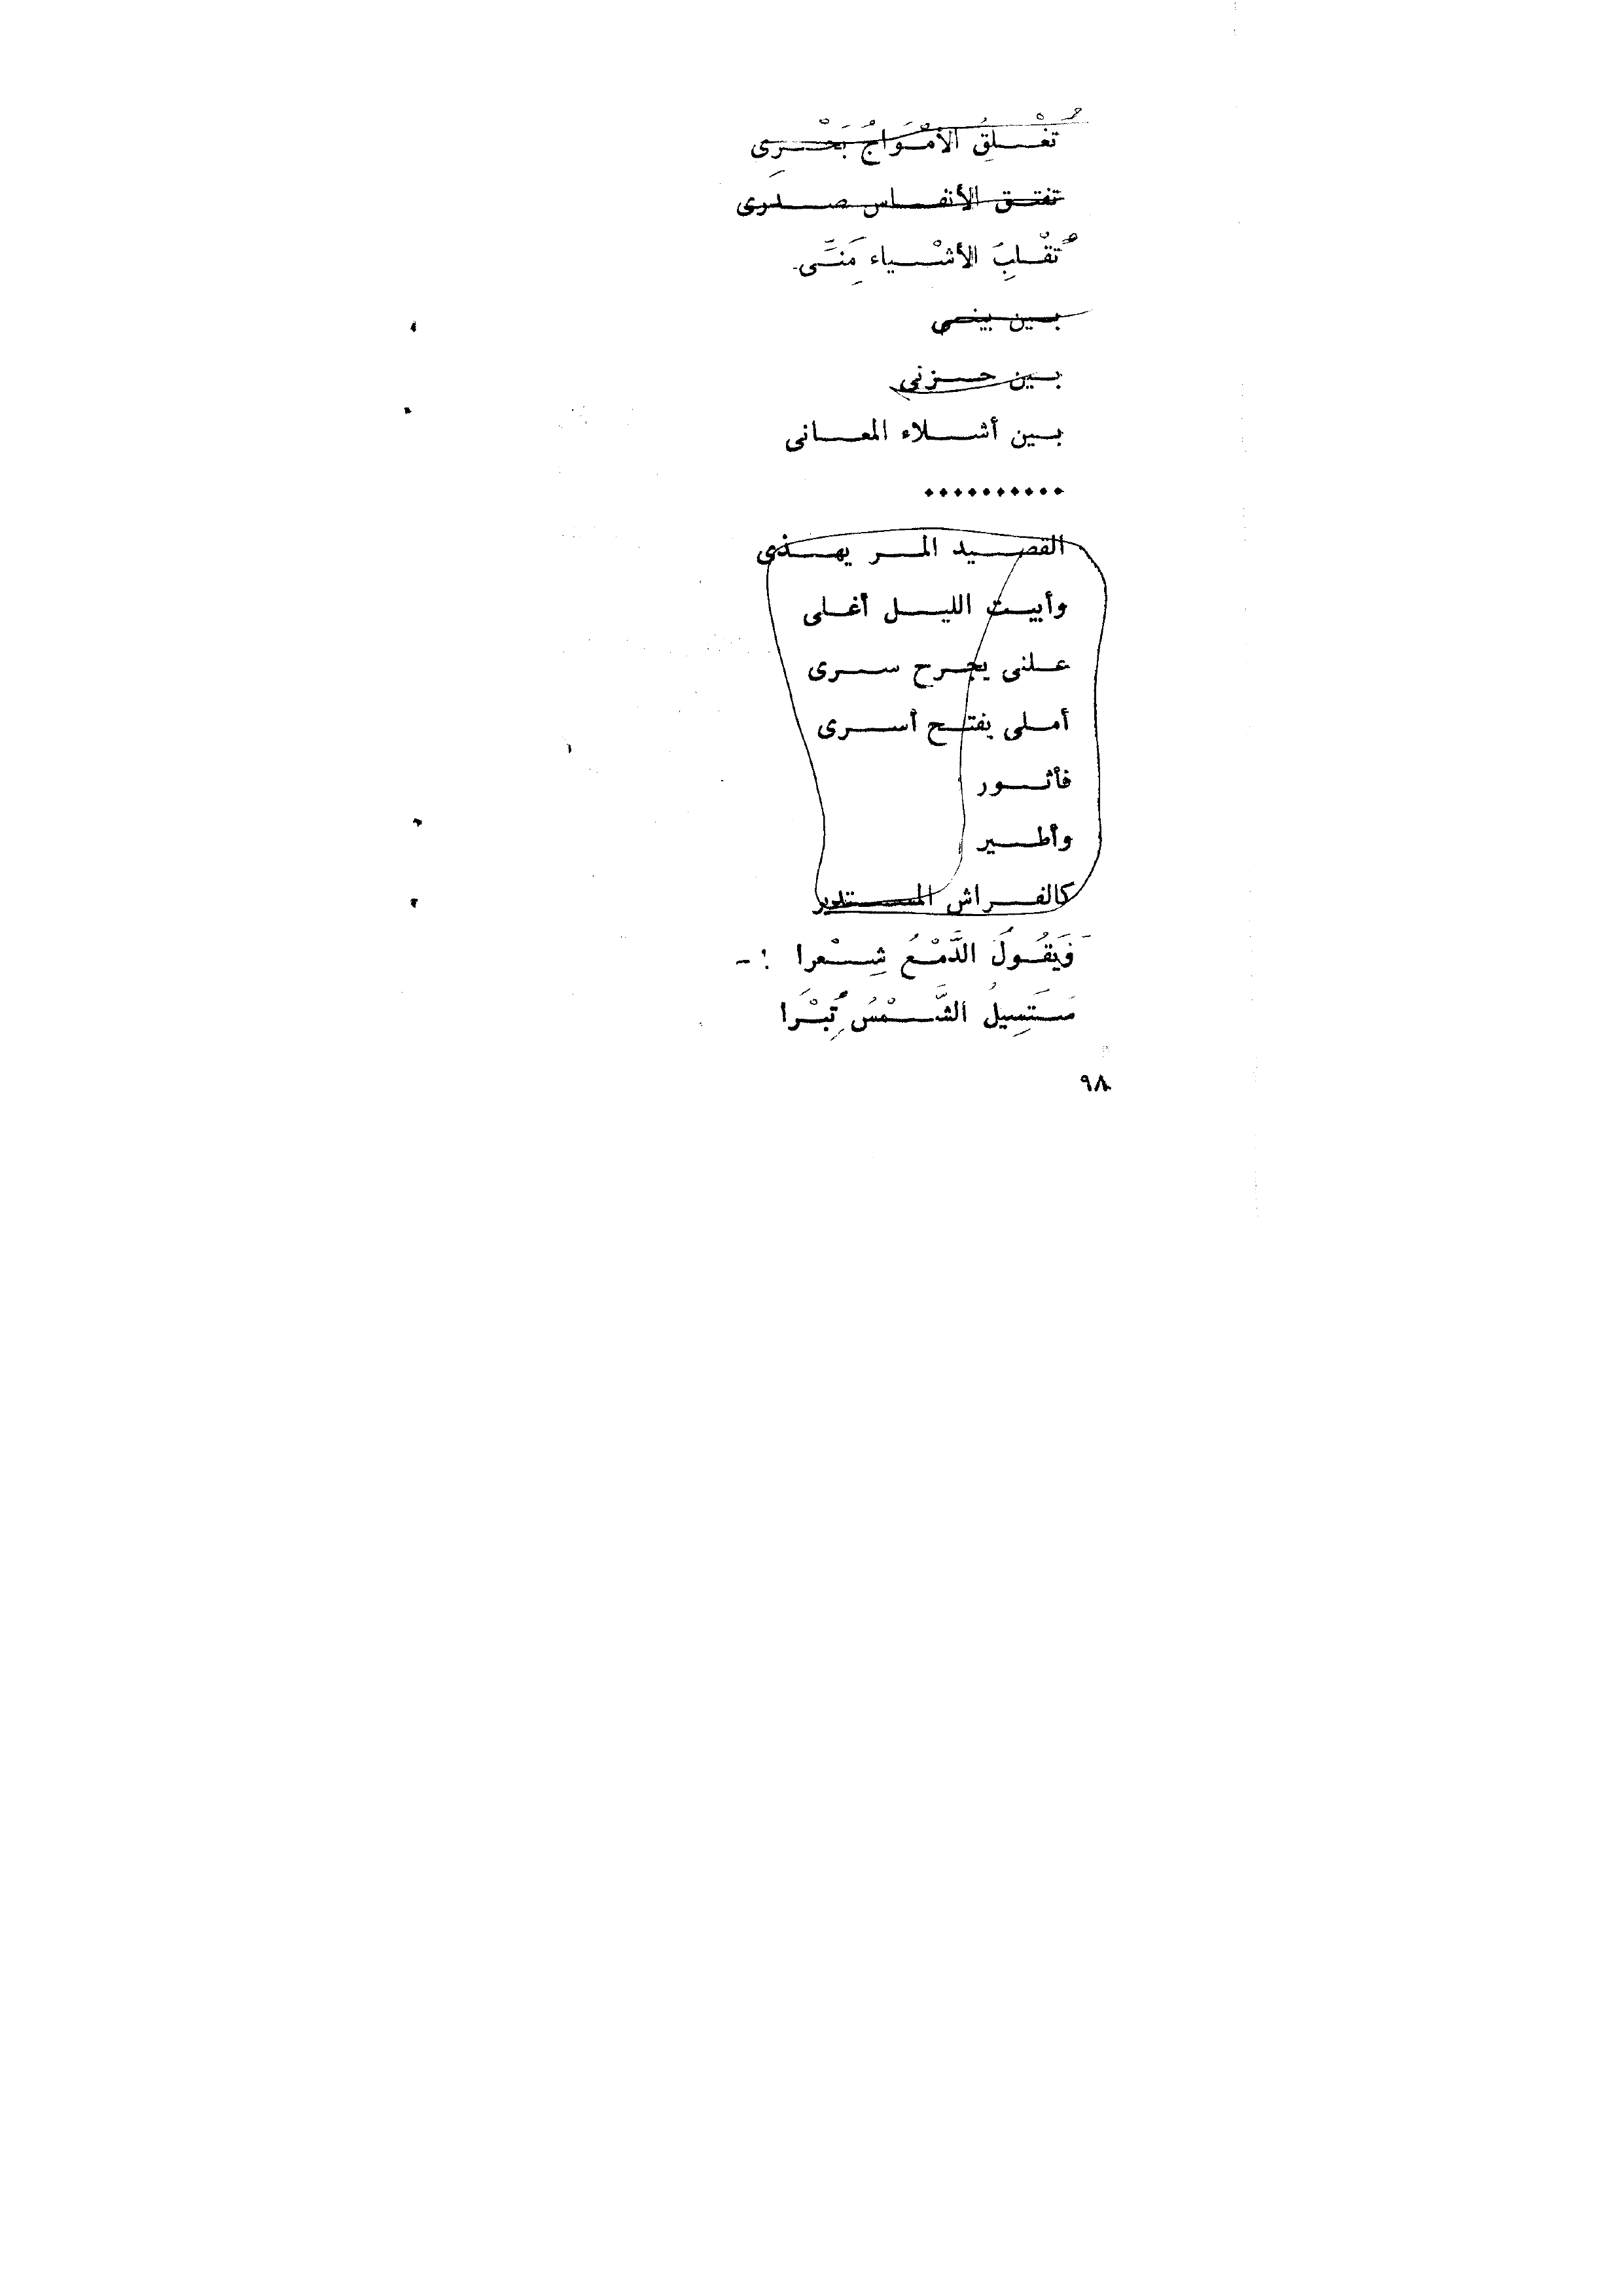 تُغْلِقُ الأَمْوَاجُ بَحْرِى
تفتق الأنفاس صدرى
تُقْلَبِ الأشْياء مِنَّى
بين بينى
بين حزنى
بين أشلاء المعانى
..........
القصيد المر يهذى
وأبيت الليل أغلى
علنى يجرح سرى
أملى يفتح أسرى
فأثور
وأطير
كالفراش المستدير
فَيَقُولَ الدَّمْعُ شِعْرا : -
سَتَسِيلُ الشَّمْسُ تِبْرَا
٩٨